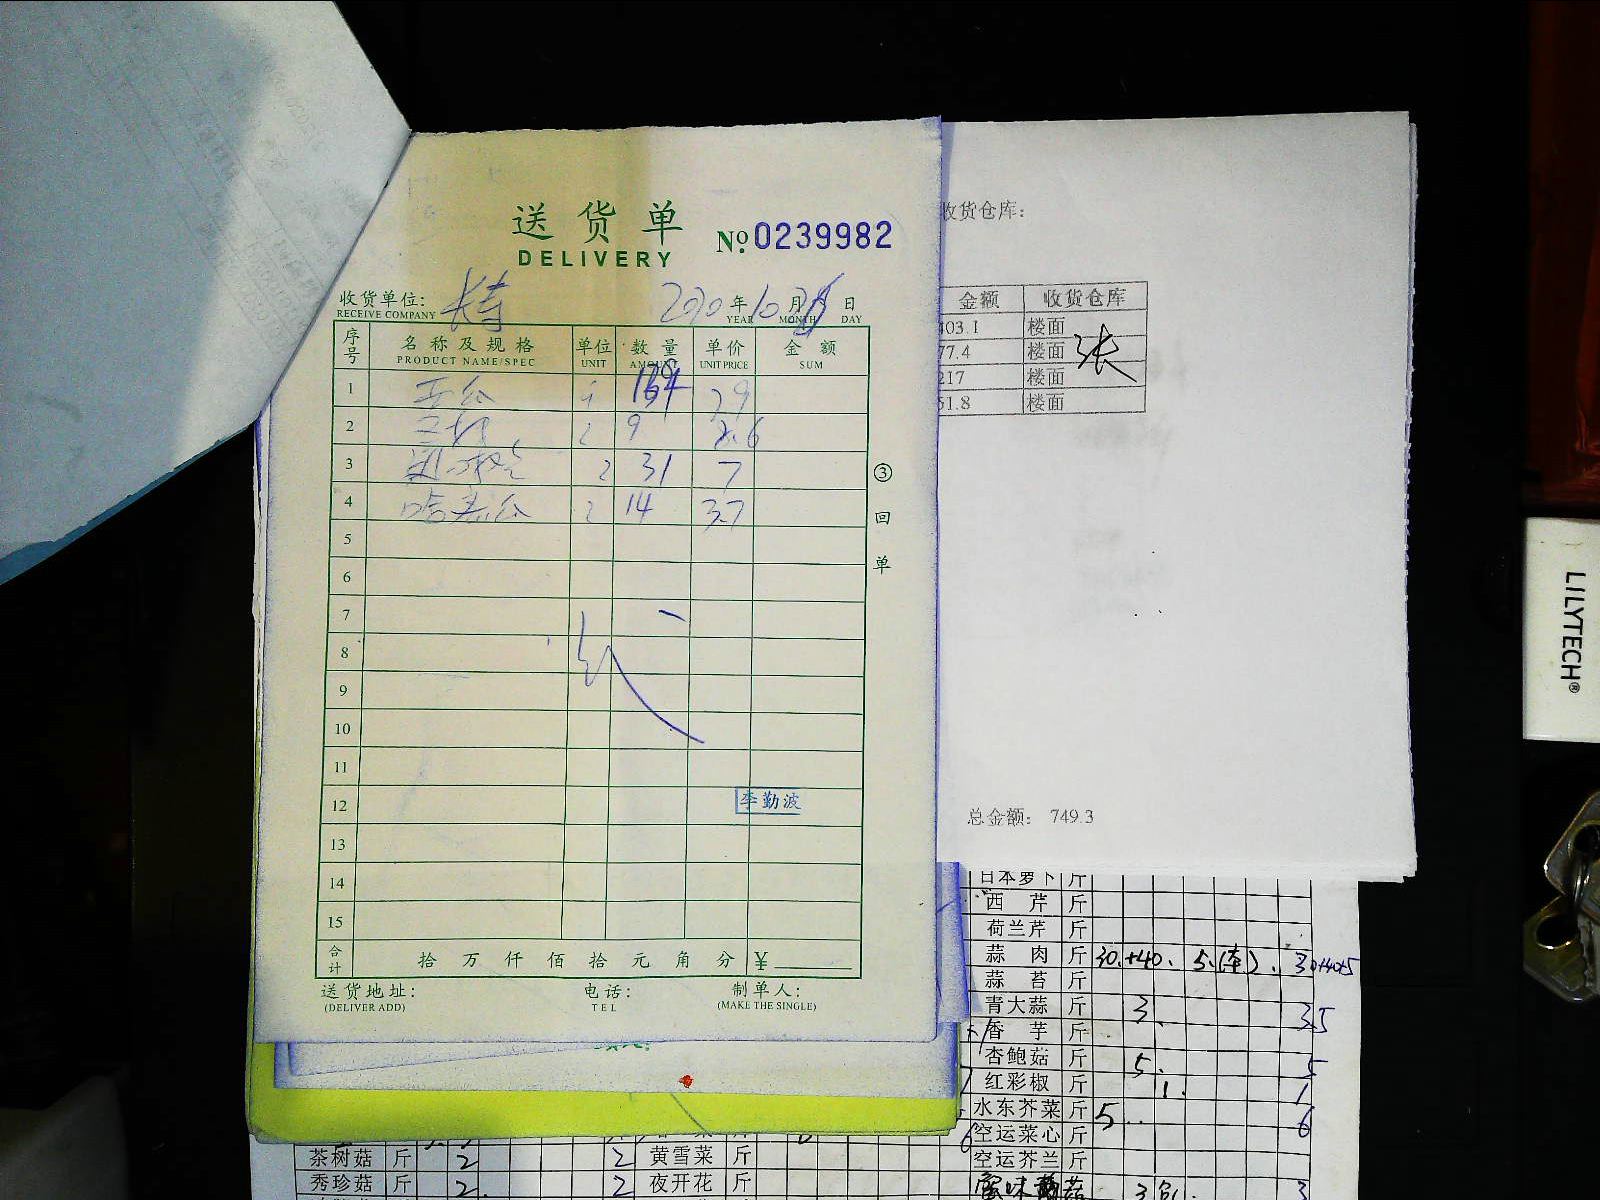 送货单
DELIVERY
№ 0239982
收货单位:
RECEIVE COMPANY
2020 年 10 月 日
YEAR MONTH DAY
序号 名称及规格 单位 数量 单价 金额
PRODUCT NAME/SPEC UNIT AMOUNT UNIT PRICE SUM
1
2 9 2.6
3 31 7
4 哈密瓜 14 3.7
5
6
7
8
9
10
11
12 李勤波
13
14
15
合计 拾 万 仟 佰 拾 元 角 分 ¥
送货地址: 电话: 制单人:
(DELIVER ADD) TEL (MAKE THE SINGLE)
③ 回单
收货仓库:
金额 收货仓库
403.1 楼面
77.4 楼面 张
217 楼面
51.8 楼面
总金额: 749.3
日本萝卜 斤
西芹 斤
荷兰芹 斤
蒜肉 斤 30.+40. 30+40+5
蒜苔 斤
青大蒜 斤 3. 3.5
香芋 斤
杏鲍菇 斤 5. 5
红彩椒 斤 1. 1
水东芥菜 斤 5.. 6
空运菜心 斤
空运芥兰 斤
茶树菇 斤 2 2 黄雪菜 斤
秀珍菇 斤 2. 2 夜开花 斤
LILYTECH®